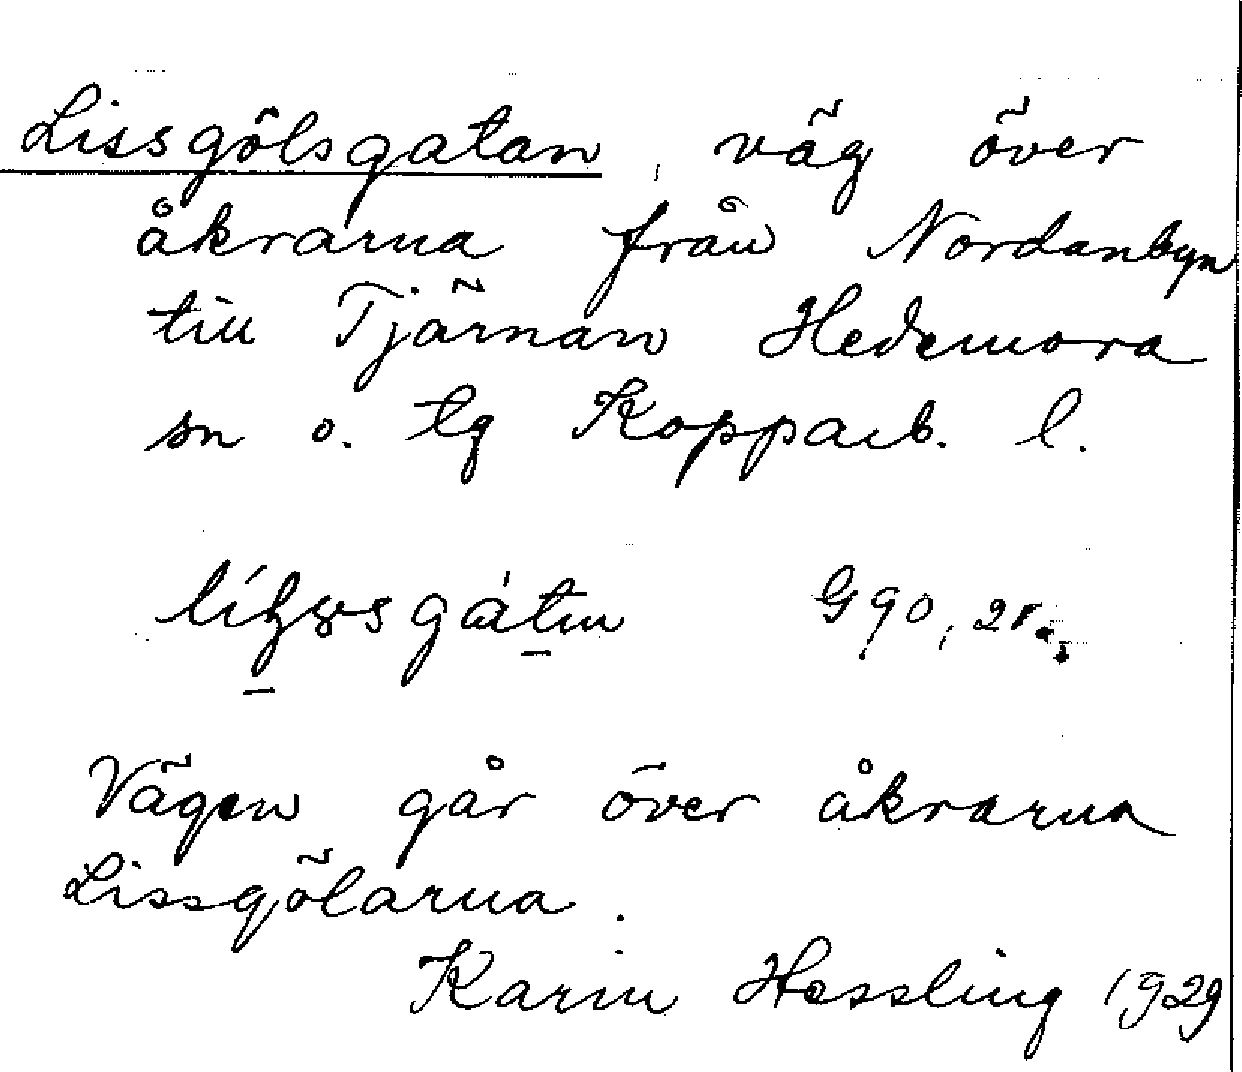 Lissgölsgatan, väg över
åkrarna från Nordanbyn
till Tjärnan Hedemora
sn o. tg Kopparb. l.
G 90, 21.
Vägen går över åkrarna
Lissgölarna.
Karin Hessling 1929